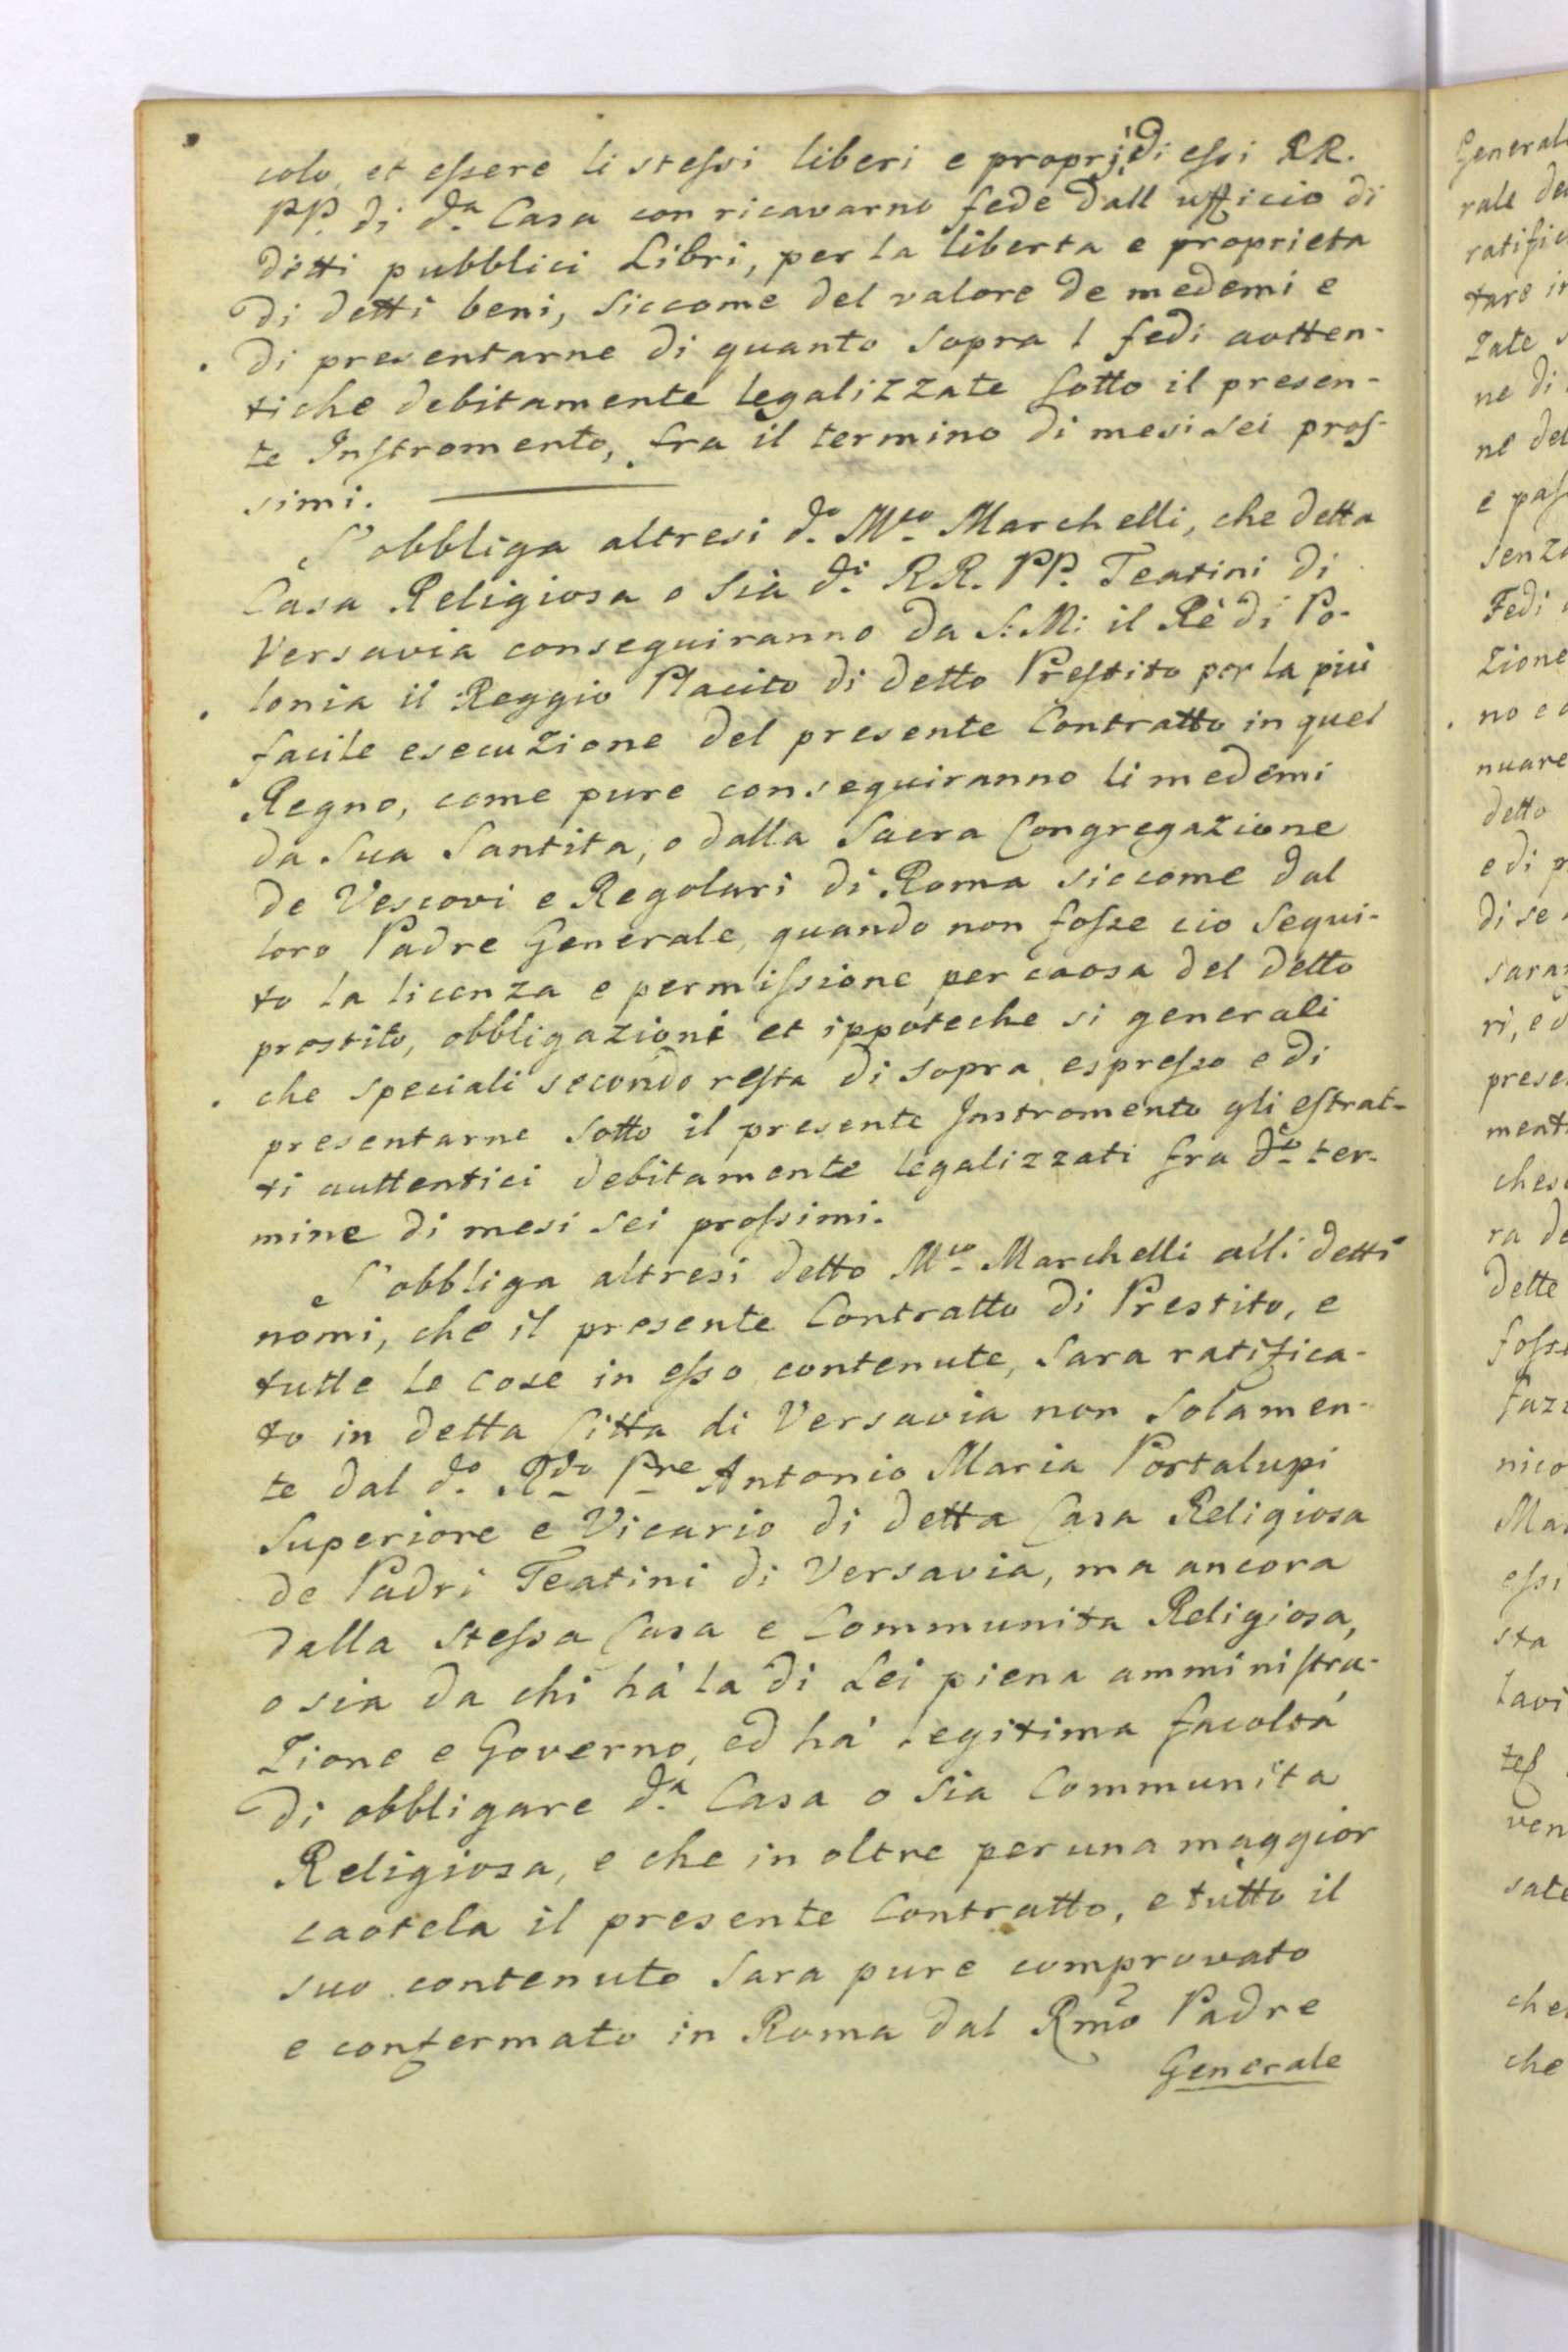 colo, et essere li stessi liberi e proprj di essi RR.
PP. di d.a Casa con ricavarne fede dall ufficio di
ditti pubblici Libri, per la liberta e proprieta
di detti beni, siccome del valore de medemi e
di presentarne di quanto sopra l fedi autten-
tiche debitamente legalizzate sotto il presen-
te Instromento, fra il termino di mesi sei pros-
simi.
S'obbliga altresi d.o M.co Marchelli, che detta
Casa Religiosa o sia d.i RR. PP. Teatini di
Versavia conseguiranno da S: M: il Rè di Po-
lonia il Reggio Placito di detto Prestito per la più
facile esecuzione del presente Contratto in quel
Regno, come pure conseguiranno li medemi
da Sua Santita, o dalla Sacra Congregazione
de Vescovi e Regolari di Roma siccome dal
loro Padre Generale, quando non fosse cio segui-
to la licenza e permissione per caosa del detto
prestito, obbligazioni et ippoteche si generali
che speciali secondo resta di sopra espresso e di
presentarne sotto il presente Instromento gli estrat-
ti auttentici debitamente legalizzati fra d.to ter-
mine di mesi sei prossimi.
S'obbliga altresi detto M.co Marchelli alli detti
nomi, che il presente Contratto di Prestito, e
tutte le cose in esso contenute, sara ratifica-
to in detta Citta di Versavia non solamen-
te dal d.o R.do P.re Antonio Maria Portalupi
Superiore e Vicario di detta Casa Religiosa
de Padri Teatini di Versavia, ma ancora
dalla stessa Casa e Communita Religiosa,
o sia da chi hà la di Lei piena amministra-
zione e Governo, ed hà legitima facoltà
di obbligare d.a Casa o sia Communita
Religiosa, e che in oltre per una maggior
caotela il presente Contratto, e tutto il
suo contenuto sara pure comprovato
e confermato in Roma dal Rmo Padre
Generale
General
rale
ratific
tare
zate
ne di
ne del
e pass
senza
Fedi
zione
no
nuare
detto
e di
di se
sara
ri,
prese
ment
ches
ra
dette
foss
faz
nico
Mar
essi
sta
lavi
ven
sate
che
che